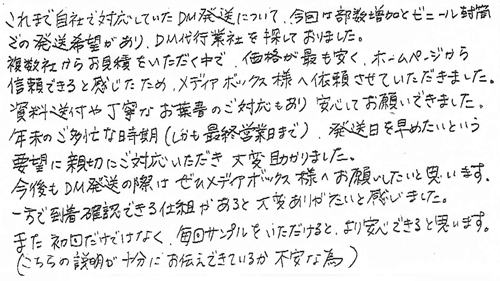 これまで自社で対応していたDM発送について、今回は部数増加とビニール封筒
での発送希望があり、DM代行業社を探しておりました。
複数社からお見積をいただく中で、価格が最も安く、ホームページから
信頼できると感じたため、メディアボックス様へ依頼させていただきました。
資料送付や丁寧なお葉書のご対応もあり安心してお願いできました。
年末のご多忙な時期(しかも最終営業日まで)、発送日を早めたいという
要望に親切にご対応いただき大変助かりました。
今後もDM発送の際はぜひメディアボックス様へお願いしたいと思います。
一方で到着確認できる仕組があると大変ありがたいと感じました。
また初回だけではなく、毎回サンプルをいただけると、より安心できると思います。
(こちらの説明が十分にお伝えできているか不安な為)